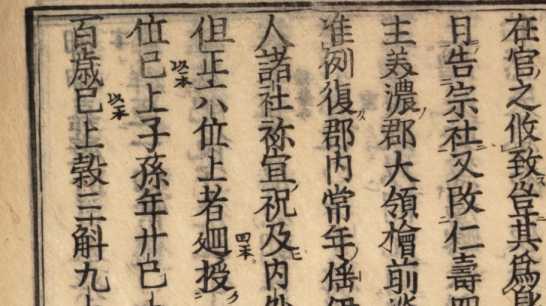 在官之攸致豈其為
日告宗社又改仁壽
主美濃郡大領檜前
准例復郡内常年徭
人諸社祢宜祝及内外
但正六位上者廻授
位已上子孫年廿已
百歳已上穀三斛九
以本
以本
四本